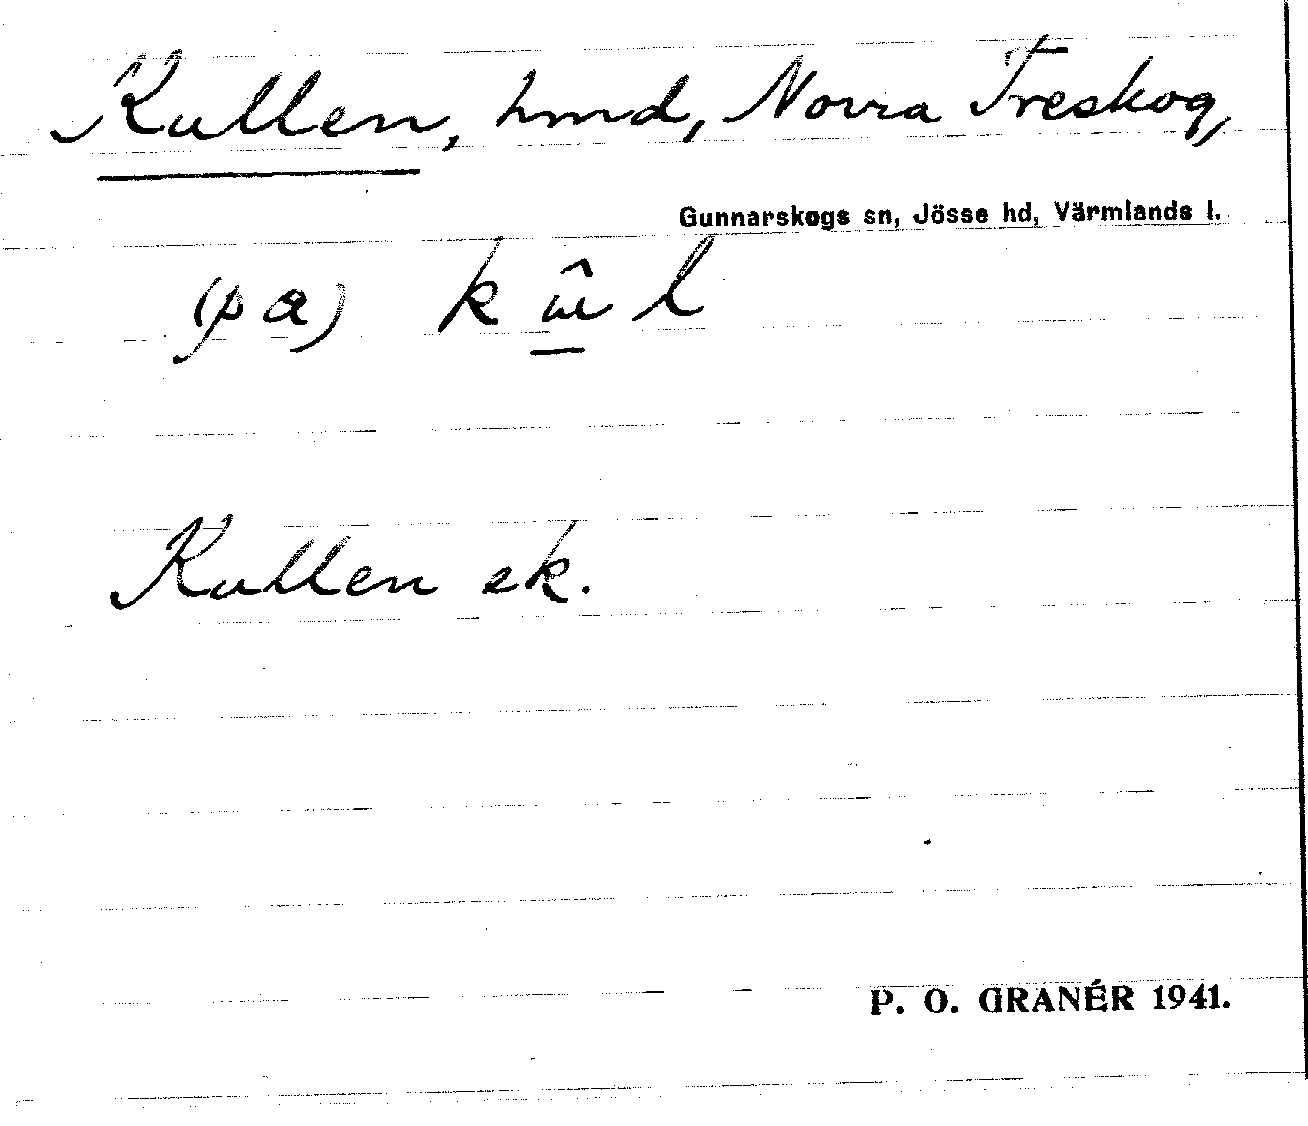 Kullen, hmd, Norra Treskog,
Gunnarskogs sn, Jösse hd, Värmlands l.
(pa) k l
Kullen ek.
P. O. GRANÉR 1941.